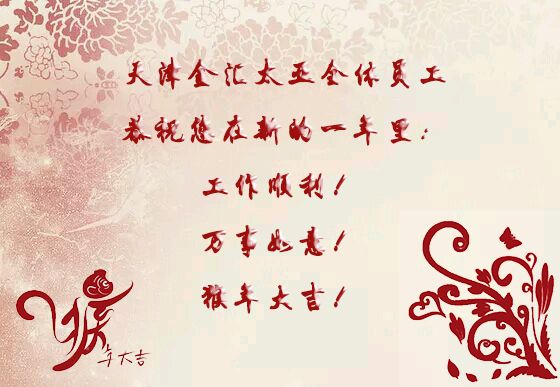 天津金汇太亚全体员工
恭祝您在新的一年里：
工作顺利！
万事如意！
猴年大吉！
猴
年大吉